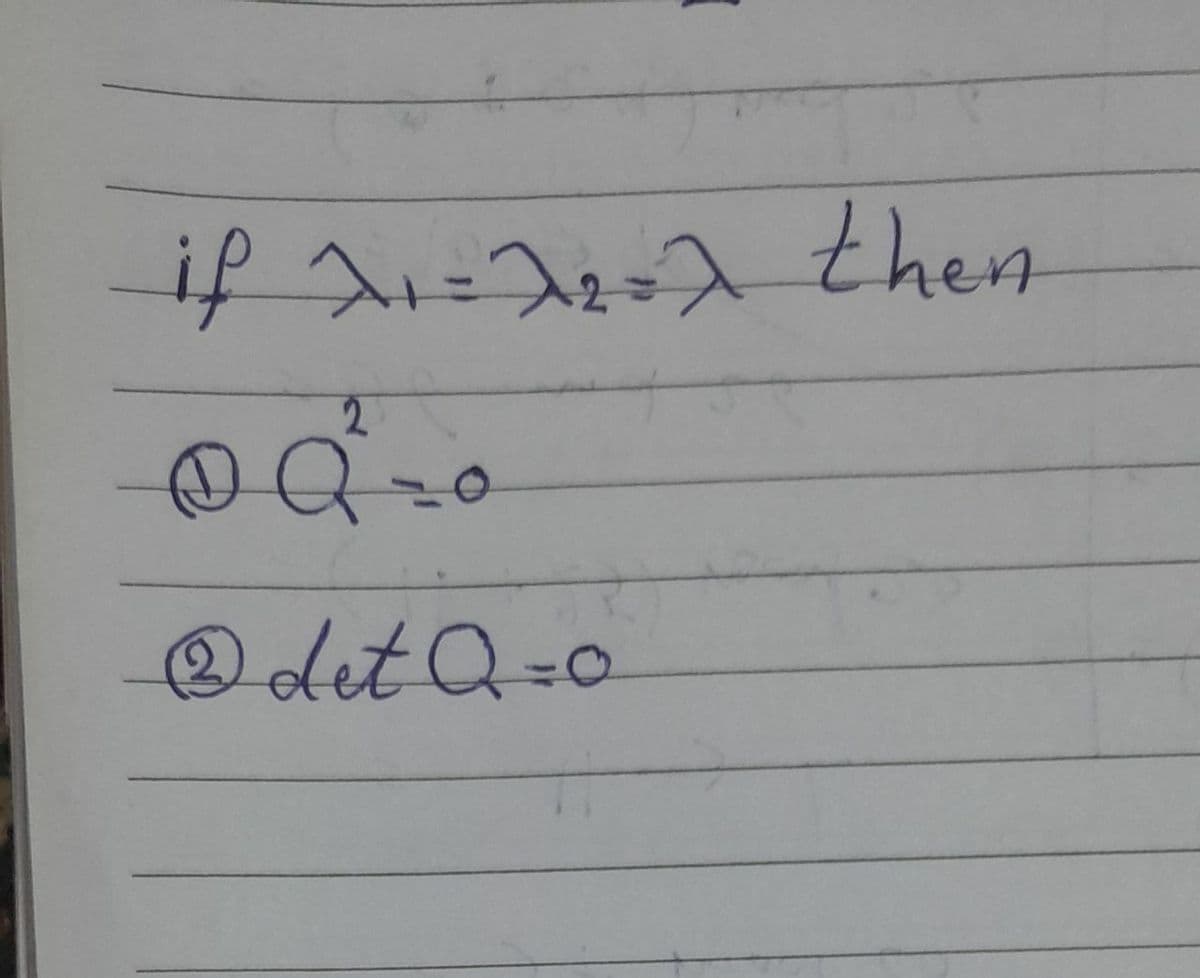 if λ₁=λ₂=λ then
① Q²=0
② det Q=0